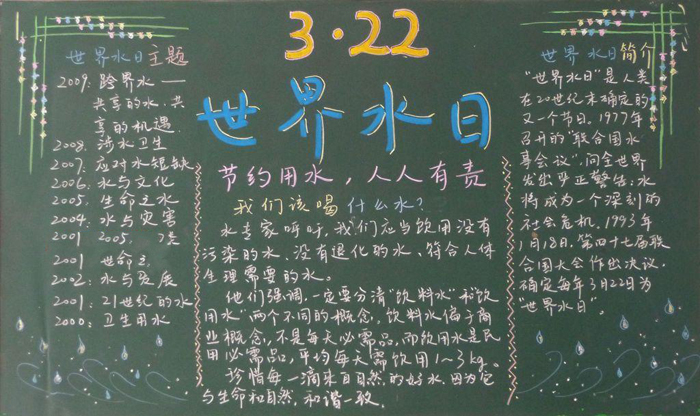 3·22
世界水日
世界水日主题
2009:跨界水——
共享的水、共
享的机遇.
2008:涉水卫生
2007:应对水短缺
2006:水与文化
2005:生命之水
2004:水与灾害
2001 2005,
2001 世命之
2002:水与发展
2001:21世纪的水
2000:卫生用水
节约用水,人人有责
我们该喝什么水?
水专家呼吁,我们应当饮用没有
污染的水、没有退化的水、符合人体
生理需要的水。
他们强调,一定要分清“饮料水”和“饮
用水”两个不同的概念,饮料水偏于商
业概念,不是每天必需品,而饮用水是民
用必需品,平均每天需饮用1~3kg。
珍惜每一滴来自自然的好水,因为它
与生命和自然,和谐一致.
世界水日简介
“世界水日”是人类
在20世纪末确定的
又一个节日.1977年
召开的“联合国水
事会议”,向全世界
发出严正警告:水
将成为一个深刻的
社会危机,1993年
1月18日,第四十七届联
合国大会作出决议.
确定每年3月22日为
“世界水日”.